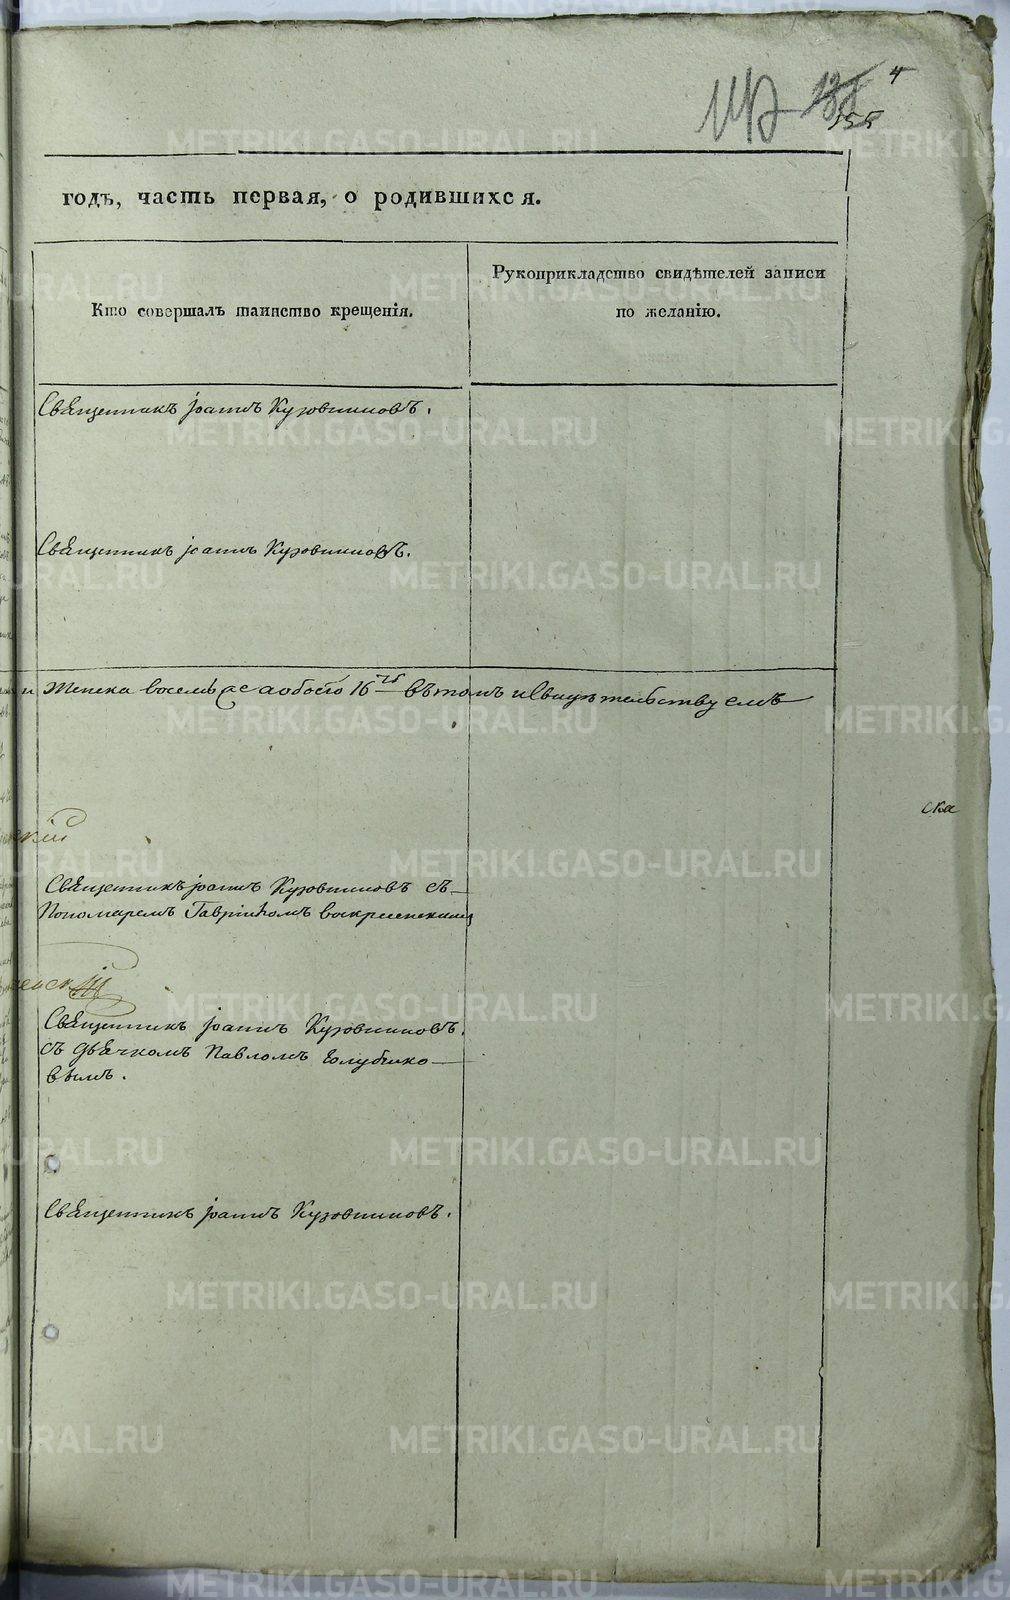 4
155
годъ, часть первая, о родившихся.
Кто совершалъ таинство крещенія.
Рукоприкладство свидѣтелей записи
по желанію.
Священникъ Іоаннъ Кузовниковъ.
Священникъ Іоаннъ Кузовниковъ.
и женска восемь а обоего 16ть въ томъ и свидѣтельствуемъ
ска
кій
Священникъ Іоаннъ Кузовниковъ съ
Пономаремъ Гавріиломъ Воскресенскимъ
Священникъ Іоаннъ Кузовниковъ.
съ Дьячкомъ Павломъ Голубико-
вымъ.
Священникъ Іоаннъ Кузовниковъ.
METRIKI.GASO-URAL.RU